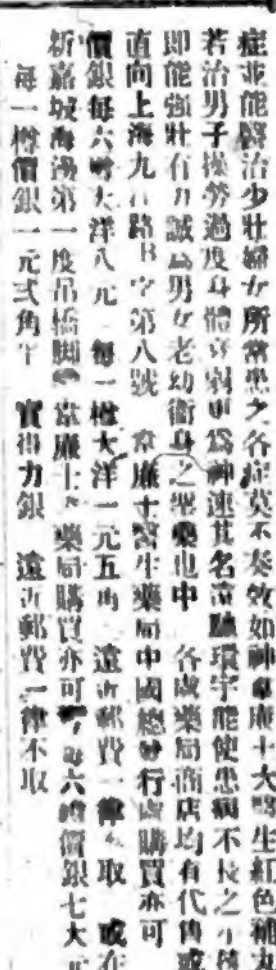 症並能醫治少壯婦女所常患之各症莫不奏效如神韋廉士大醫生紅色補丸
若治男子操勞過度身體衰弱更爲神速其名聲馳環宇能使患病不長之
即能強壯有力誠爲男女老幼衛身之聖藥也中 各處藥局商店均有代售或
直向上海九江路 B 字第八號 韋廉士醫生藥局中國總發行處購買亦可
價銀每六樽大洋八元 每一樽大洋一元五角 遠近郵費一律不取 或在
新嘉坡海濱第一度吊橋脚 韋廉士大藥局購買亦可 每六樽價銀七大元
每一樽價銀一元弍角半 實得力銀 遠近郵費一律不取